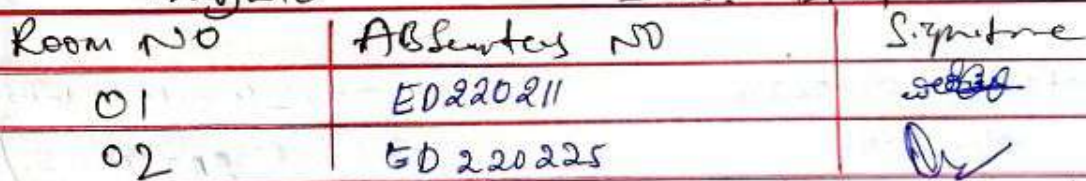 Room NO ABSentees NO Signitrue
01 ED220211
02 ED 220225